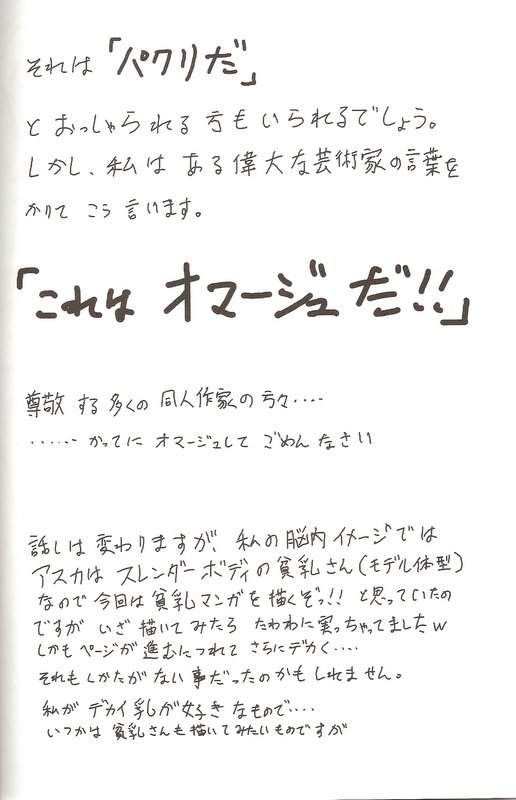 それは「パクリだ」
とおっしゃられる方もいられるでしょう。
しかし、私はある偉大な芸術家の言葉を
かりてこう言います。
「これはオマージュだ!!」
尊敬する多くの同人作家の方々‥‥
‥‥‥かってにオマージュしてごめんなさい
話しは変わりますが、私の脳内イメージでは
アスカはスレンダーボディの貧乳さん(モデル体型)
なので今回は貧乳マンガを描くぞっ!!と思っていたの
ですがいざ描いてみたらたわわに実っちゃってましたw
しかもページが進むにつれてさらにデカく‥‥
それもしかたがない事だったのかもしれません。
私がデカイ乳が好きなもので‥‥
いつかは貧乳さんも描いてみたいものですが